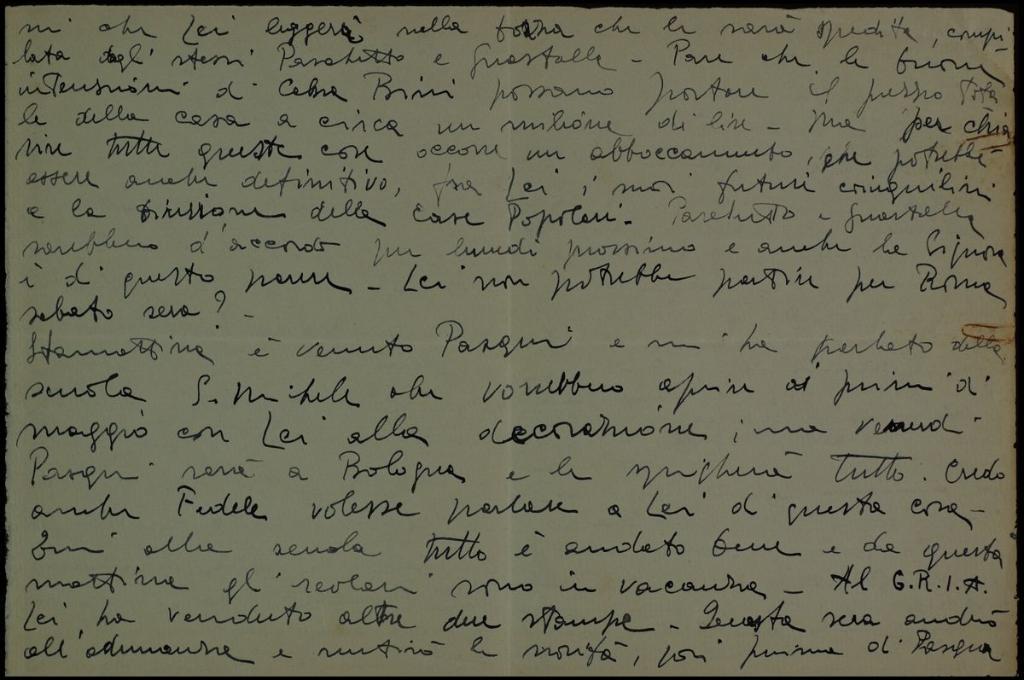 mi che Lei leggerà nella bozza che le sarà spedita, compi-
lata dagli stessi Paschetto e Guastalla - Pare che le buone
intenzioni di Casa Bini possano portare il prezzo tota
le della casa a circa un milione di lire - Ma per chia
rire tutte queste cose occorre un abboccamento, che potrebbe
essere anche definitivo, fra Lei i suoi futuri coinquilini
e la Direzione della Case Popolari - Paschetto e Guastalla
sarebbero d'accordo per lunedì prossimo e anche la Signora
è di questo parere - Lei non potrebbe partire per Roma
sabato sera? -
Stamattina è venuto Pasqui e mi ha parlato della
scuola S. Michele che vorrebbero aprire ai primi di
maggio con Lei alla decorazione; ma venerdì
Pasqui sarà a Bologna e le spiegherà tutto. Credo
anche Fedele volesse parlare a Lei di questa cosa -
Qui alla scuola tutto è andato bene e da questa
mattina gli scolari sono in vacanza - Al G.R.I.A.
Lei ha venduto altre due stampe - Questa sera andrò
all'adunanza e sentirò le novità, poi prima di Pasqua